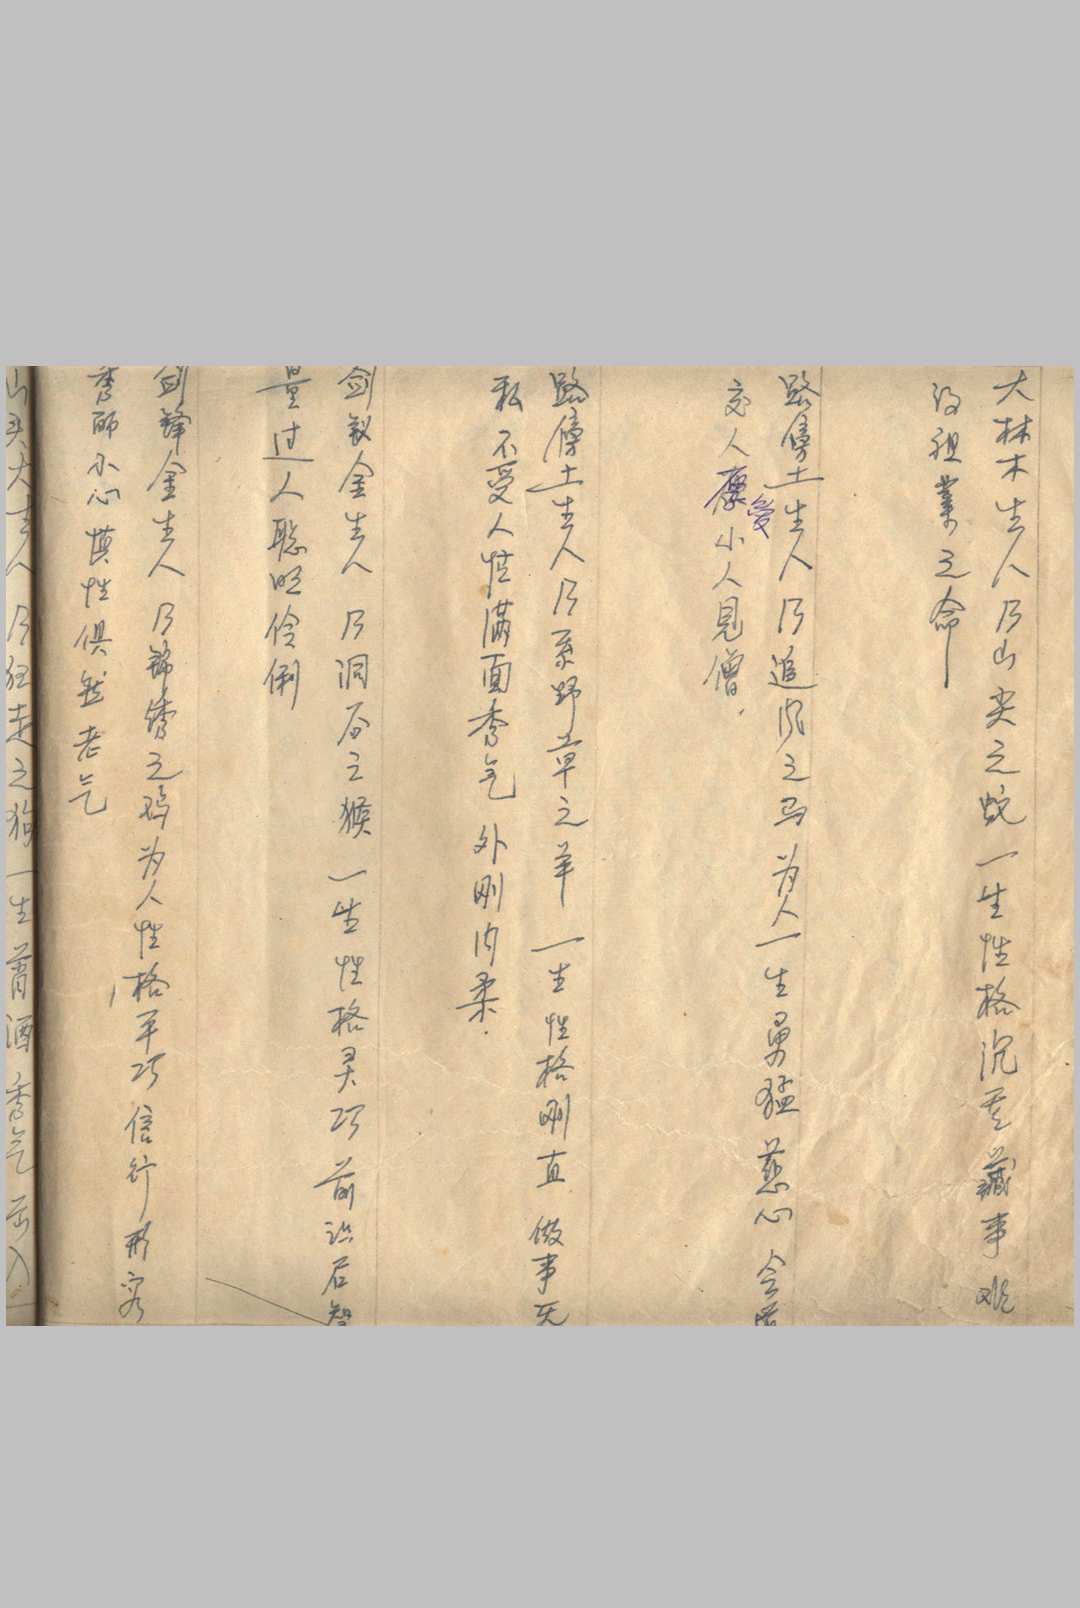 大林木生人乃山尖之蛇一生性格沉 藏事难
没祖業之命
路傍土生人乃追风之马为人一生勇猛慈心会道
交人 愛小人見僧.
路傍土生人乃系野草之羊一生性格刚直做事无
私不受人性满面秀气外刚内柔.
剑锋金生人乃洞 之猴一生性格灵巧前识后智
量过人聪明伶俐
剑锋金生人乃锦绣之鸡为人性格平巧信行形容
秀丽小心慎性俱 老气
山头火生人乃狂走之狗一生 酒秀气